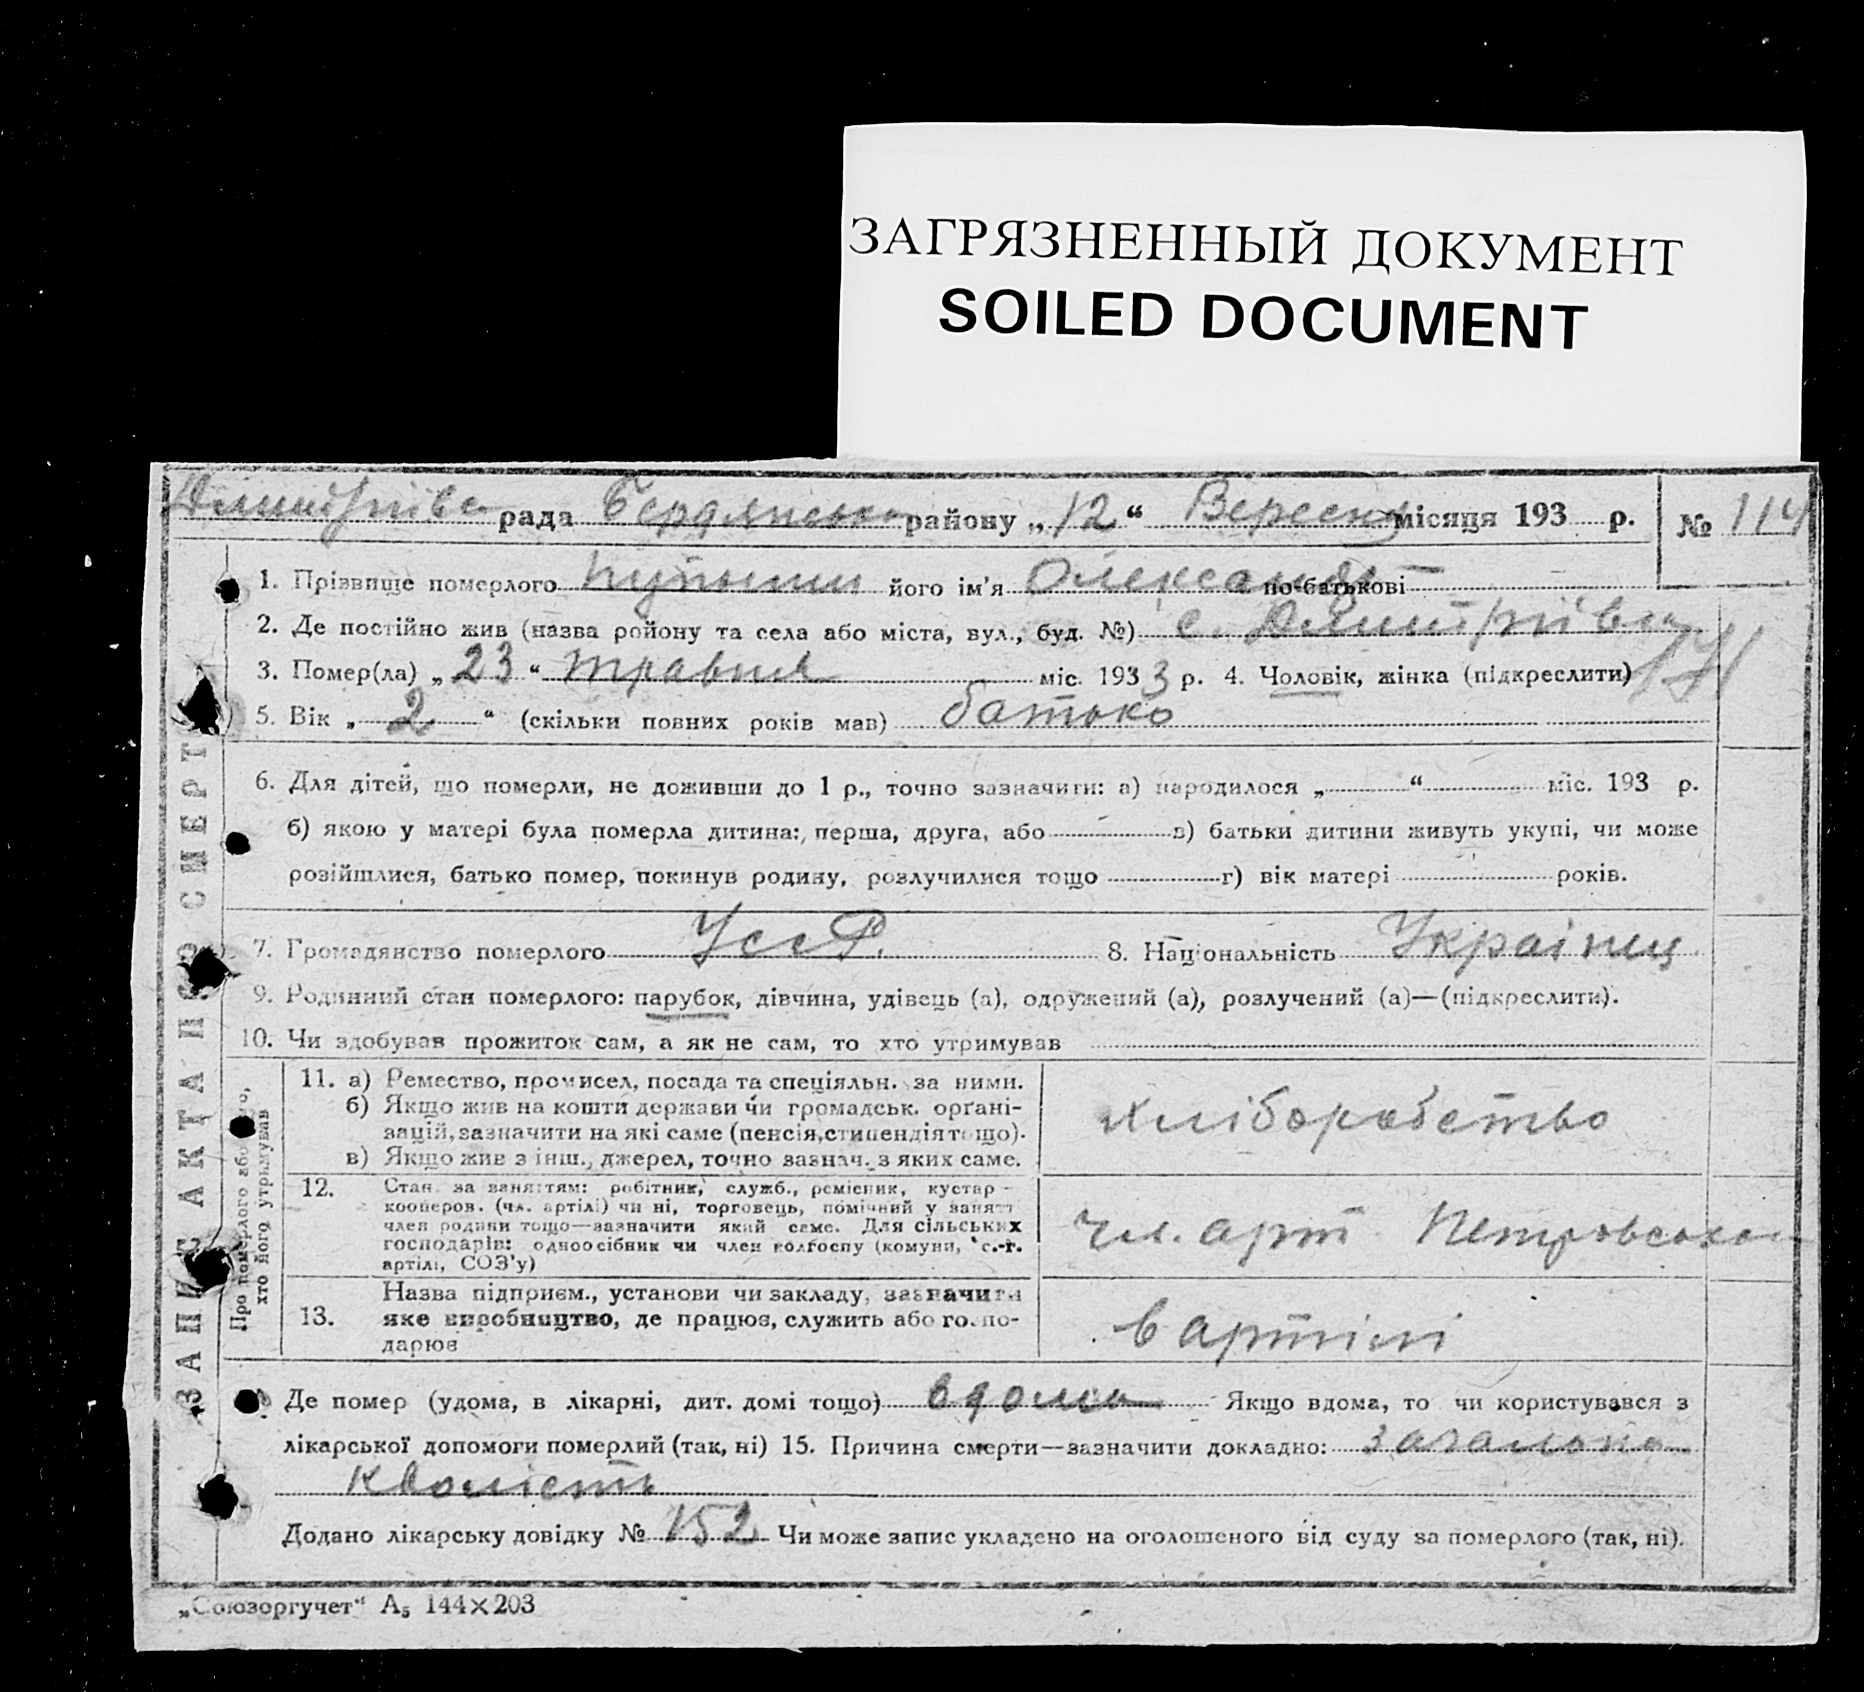 ЗАГРЯЗНЕННЫЙ ДОКУМЕНТ
SOILED DOCUMENT
Дмитрівка рада Бердянського району „12“ Вересня місяця 193 р. № 114
1. Прізвище померлого його ім'я Олександр по-батькові —
2. Де постійно жив (назва району та села або міста, вул., буд. №) с. Дмитрівка
3. Помер(ла) „23“ травня міс. 1933 р. 4. Чоловік, жінка (підкреслити)
171
5. Вік „ 2 “ (скільки повних років мав) батько
6. Для дітей, що померли, не доживши до 1 р., точно зазначити: а) народилося „ “ міс. 193 р.
б) якою у матері була померла дитина: перша, друга, або в) батьки дитини живуть укупі, чи може
розійшлися, батько помер, покинув родину, розлучилися тощо г) вік матері років.
7. Громадянство померлого УССР. 8. Національність Українец
9. Родинний стан померлого: парубок, дівчина, удівець (а), одружений (а), розлучений (а)—(підкреслити).
10. Чи здобував прожиток сам, а як не сам, то хто утримував
ЗАПИС АКТА ПРО СМЕРТ
Про померлого або того, хто його утримував
11. а) Ремество, промисел, посада та спеціяльн. за ними.
б) Якщо жив на кошти держави чи громадськ. орґані-
зацій, зазначити на які саме (пенсія, стипендія тощо).
в) Якщо жив з інш., джерел, точно зазнач. з яких саме.
хліборобство
12. Стан за заняттям: робітник, служб., ремісник, кустар—
кооперов. (чл. артілі) чи ні, торговець, помічний у занятті
член родини тощо—зазначити який саме. Для сільських
господарів: одноосібник чи член колгоспу (комуни, с.-г.
артілі, СОЗ'у)
чл. арт Петровського
13. Назва підприєм., установи чи закладу, зазначити
яке виробництво, де працює, служить або госпо-
дарює
в артілі
Де помер (удома, в лікарні, дит. домі тощо) вдома Якщо вдома, то чи користувався з
лікарської допомоги померлий (так, ні) 15. Причина смерти—зазначити докладно: загальна
кволість
Додано лікарську довідку № 152 Чи може запис укладено на оголошеного від суду за померлого (так, ні).
„Союзоргучет“ А₅ 144×203